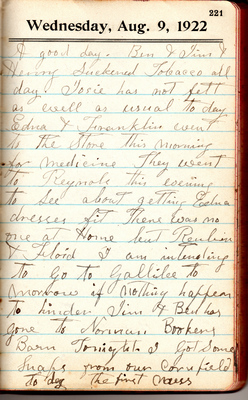 221
Wednesday, Aug. 9, 1922
A good day. Ben & Jim &
Henry Suckered Tobacco all
day Josie has not felt
as well as usual to day
Edna & Franklin went
to the Store this morning
for medicine They went
to Reynols this evening
to See about getting Edna
dresses fit There was no
one at Home but Reuben
& Floid I am intending
to Go to Gallilee to
morrow if nothing happen
to hinder Jim & Ben has
gone to Norman Bookers
Barn Tonight I Got Some
Snaps from our Cornfield
to day the first mess